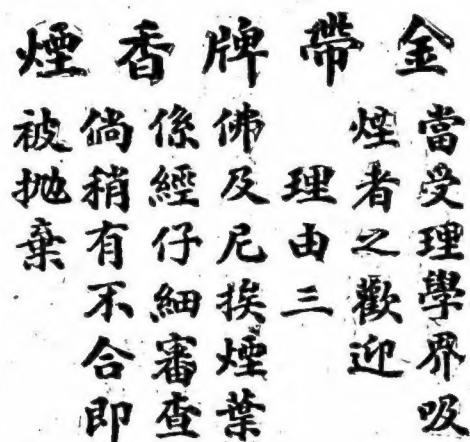 金帶牌香煙
當受理學界吸
煙者之歡迎
理由三
佛及尼挨煙葉
係經仔細審查
倘稍有不合即
被抛棄